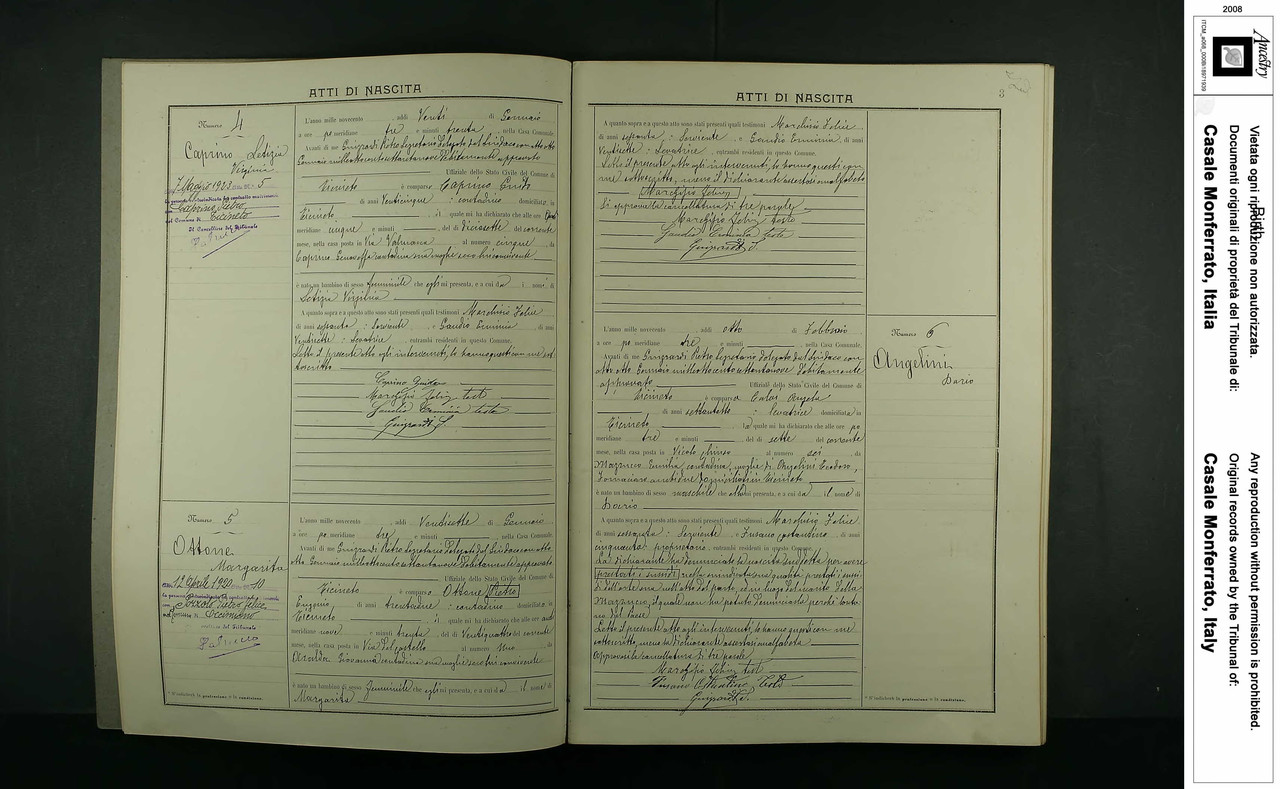 ATTI DI NASCITA
Numero 4
Caprino Letizia
Virginia
7 Maggio 1923
Caprino Pietro
Ticineto
Il Cancelliere del Tribunale
L'anno mille novecento, addì Venti di Gennaio
a ore po meridiane tre e minuti trenta, nella Casa Comunale.
Avanti di me Guignardi Pietro Segretario delegato dal Sindaco con atto otto
Gennaio milleottocentosettantanove debitamente approvato
Uffiziale dello Stato Civile del Comune di
Ticineto è comparso Caprino Guido
di anni Venticinque : contadino domiciliato in
Ticineto il quale mi ha dichiarato che alle ore
meridiane cinque e minuti, del dì diciassette del corrente
mese, nella casa posta in Via Valmaria al numero cinque, da
Caprino contadina sua moglie seco lui convivente
è nato un bambino di sesso femminile che egli mi presenta, e a cui dà i nomi di
Letizia Virginia
A quanto sopra e a questo atto sono stati presenti quali testimoni Marchisio Felice
di anni sessanta : Serviente e Gaudio Erminia, di anni
Ventisette : Levatrice, entrambi residenti in questo Comune.
Letto il presente atto agli intervenuti, lo hanno questi con me sot-
toscritto
Caprino Guido
Marchisio Felice test
Gaudio Erminia teste
Numero 5
Ottone
Margarita
12 Aprile 1920 10
Pietro Felice
Occimiano
L'anno mille novecento, addì Ventisette di Gennaio
a ore po meridiane tre e minuti, nella Casa Comunale.
Avanti di me Guignardi Pietro Segretario delegato dal Sindaco con atto
otto Gennaio milleottocentosettantanove debitamente approvato
Uffiziale dello Stato Civile del Comune di
Ticineto è comparso Ottone Pietro
Eugenio, di anni trentadue : contadino domiciliato in
Ticineto il quale mi ha dichiarato che alle ore anti
meridiane nove e minuti trenta, del dì Ventiquattro del corrente
mese, nella casa posta in Via del castello al numero Uno, da
Giovanna contadina sua moglie seco lui convivente
è nato un bambino di sesso femminile che egli mi presenta, e a cui dà il nome di
Margarita
ATTI DI NASCITA
3
A quanto sopra e a questo atto sono stati presenti quali testimoni Marchisio Felice
di anni sessanta : Serviente e Gaudio Erminia, di anni
Ventisette : Levatrice, entrambi residenti in questo Comune.
Letto il presente atto agli intervenuti, lo hanno questi con
me sottoscritto, meno il dichiarante asseritosi analfabeta
Marchisio Felice
Si approva la cancellatura di tre parole
Marchisio Felice teste
Gaudio Erminia teste
L'anno mille novecento, addì otto di Febbraio
a ore po meridiane tre e minuti, nella Casa Comunale.
Avanti di me Guignardi Pietro Segretario delegato dal Sindaco con
atto otto Gennaio milleottocentosettantanove debitamente
approvato Uffiziale dello Stato Civile del Comune di
Ticineto è comparsa Angela
di anni settantotto : levatrice domiciliata in
Ticineto la quale mi ha dichiarato che alle ore po
meridiane tre e minuti, del dì sette del corrente
mese, nella casa posta in Vicolo chiuso al numero sei, da
Mazzucco Emilia, contadina, moglie di Angelini Teodoro,
in Ticineto
è nato un bambino di sesso maschile che mi presenta, e a cui dà il nome di
Dario
A quanto sopra e a questo atto sono stati presenti quali testimoni Marchisio Felice
di anni sessanta : Serviente e Fusano Costantino di anni
cinquanta : proprietario, entrambi residenti in questo Comune.
La dichiarante ha denunciato la nascita suddetta per avere
prestato i sussidi nella suindicata sua qualità prestati i sussi-
di dell'arte sua nell'atto del parto, ed in luogo del marito della
Mazzucco, il quale non ha potuto denunciarla perchè lonta-
no dal paese
Letto il presente atto agli intervenuti, lo hanno questi con me
sottoscritto, meno la dichiarante asseritasi analfabeta
Approvasi la cancellatura di tre parole
Marchisio Felice test
Fusano Costantino Testo
Numero 6
Angelini
Dario
* S'indicherà la professione o la condizione.
* S'indicherà la professione o la condizione.
2008
Ancestry
Birth
Vietata ogni riproduzione non autorizzata.
Documenti originali di proprietà del Tribunale di:
Casale Monferrato, Italia
Any reproduction without permission is prohibited.
Original records owned by the Tribunal of:
Casale Monferrato, Italy